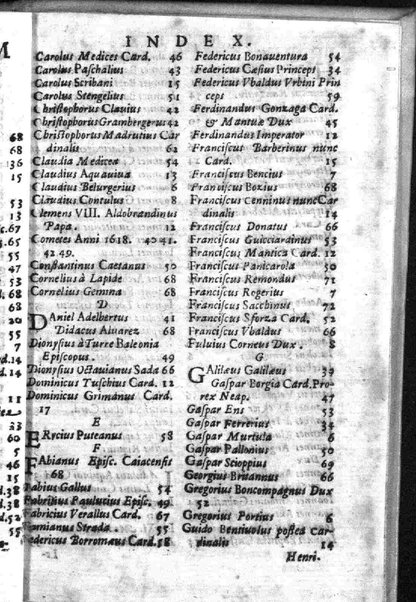 INDEX.
Carolus Medices Card. 46
Carolus Paschalius 43
Carolus Scribani 15
Carolus Stengelius 51
Christophorus Clavius 42
Christophorus Grambergerus 42
Christophorus Madrutius Car
dinalis 62
Claudia Medicea 54
Claudius Aquauiua 13
Claudius Belurgerius 6
Claudius Contulus 8
Clemens VIII. Aldobrandinus
Papa. 12
Cometes Anni 1618. 40 41.
42 49.
Constantinus Caetanus 50
Cornelius à Lapide 68
Cornelius Gemma 68
D
Daniel Adelbertus 41
Didacus Aluarez 68
Dionysius à Turre Baleonia
Episcopus. 49
Dionysius Octauianus Sada 66
Dominicus Tuschius Card. 12
Dominicus Grimanus Card.
17
E
Erycius Puteanus 58
F
Fabianus Episc. Caiacensis
68
Fabius Gallus 54
Fabritius Paulucius Episc. 49
Fabricius Verallus Card. 67
Famianus Strada. 55
Federicus Borromæus Card. 58
Federicus Bonauentura 54
Federicus Cæsius Princeps 34
Federicus Vbaldus Vrbini Prin
ceps 59
Ferdinandus Gonzaga Card.
& Mantuæ Dux 45
Ferdinandus Imperator 12
Franciscus Barberinus nunc
Card. 15
Franciscus Bencius 7
Franciscus Bozius 68
Franciscus Cenninus nunc Car
dinalis 14
Franciscus Donatus 66
Franciscus Guicciardinus 53
Franciscus Mantica Card. 12
Franciscus Panicarola 50
Franciscus Remondus 71
Franciscus Rogerius 7
Franciscus Sacchinus 72
Franciscus Sforza Card. 51
Franciscus Vbaldus 66
Fuluius Corneus Dux. 8
G
Galilæus Galilæus 39
Gaspar Borgia Card. Pro-
rex Neap. 47
Gaspar Ens 53
Gaspar Ferrerius 34
Gaspar Murtula 6
Gaspar Pallonius 50
Gaspar Scioppius 69
Georgius Britannus 66
Gregorius Boncompagnus Dux
52
Gregorius Portius 6
Guido Bentiuolus postea Car-
dinalis 14
Henri-